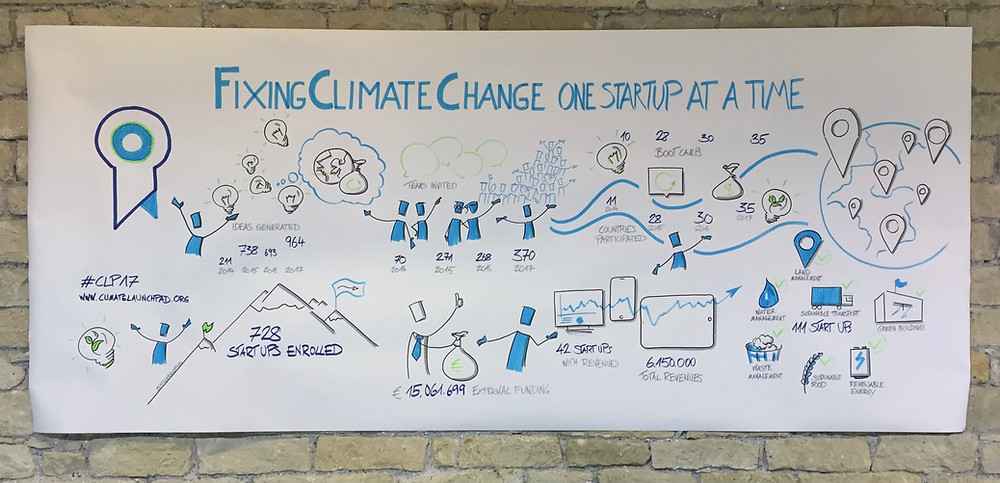 FIXING CLIMATE CHANGE ONE STARTUP AT A TIME
IDEAS GENERATED
211 738 693 964
2014 2015 2016 2017
TEAMS INVITED
70 271 268 370
2014 2015 2016 2017
10 28 30 35
BOOTCAMPS
11 28 30 35
2014 2015 2016 2017
COUNTRIES
PARTICIPATED
#CLP17
WWW.CLIMATELAUNCHPAD.ORG
728
STARTUPS ENROLLED
€
€ 15.061.699 EXTERNAL FUNDING
42 STARTUPS
WITH REVENUES
6.150.000
TOTAL REVENUES
LAND
MANAGEMENT
WATER
MANAGEMENT
SUSTAINABLE TRANSPORT
111 START UPS
GREEN BUILDINGS
WASTE
MANAGEMENT
SUSTAINABLE
FOOD
RENEWABLE
ENERGY